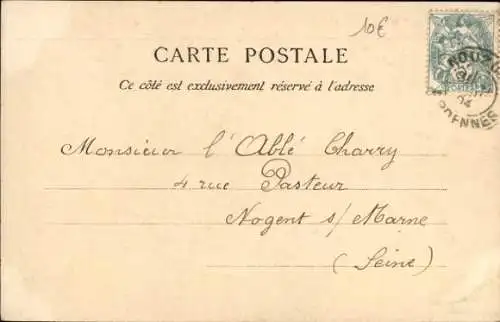 10€
CARTE POSTALE
Ce côté est exclusivement réservé à l'adresse
POSTES
NOUZ
04
ARDENNES
Monsieur l'Abbé Charry
4 rue Pasteur
Nogent s/ Marne
(Seine)